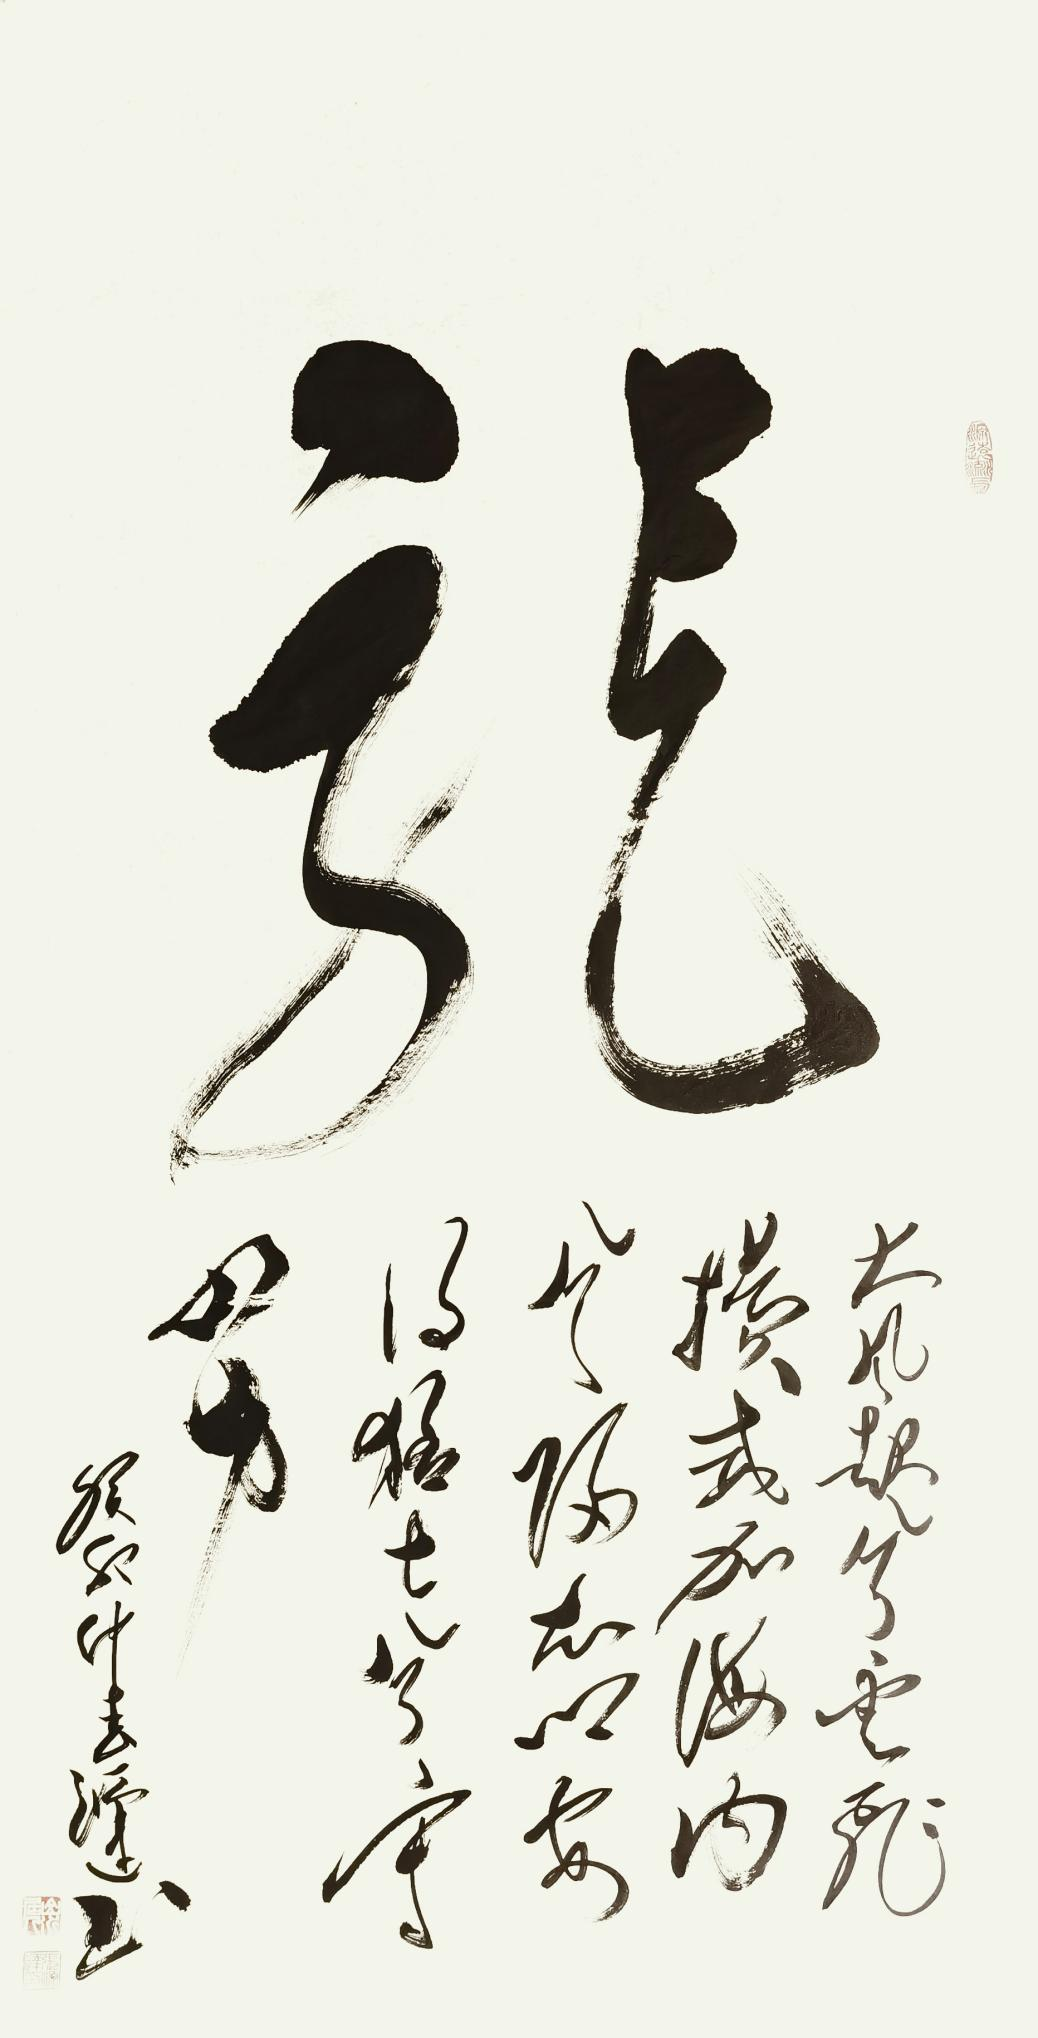 龍
大風起兮雲飛
揚威加海内
兮歸故鄉安
得猛士兮守
四方
癸卯仲春書